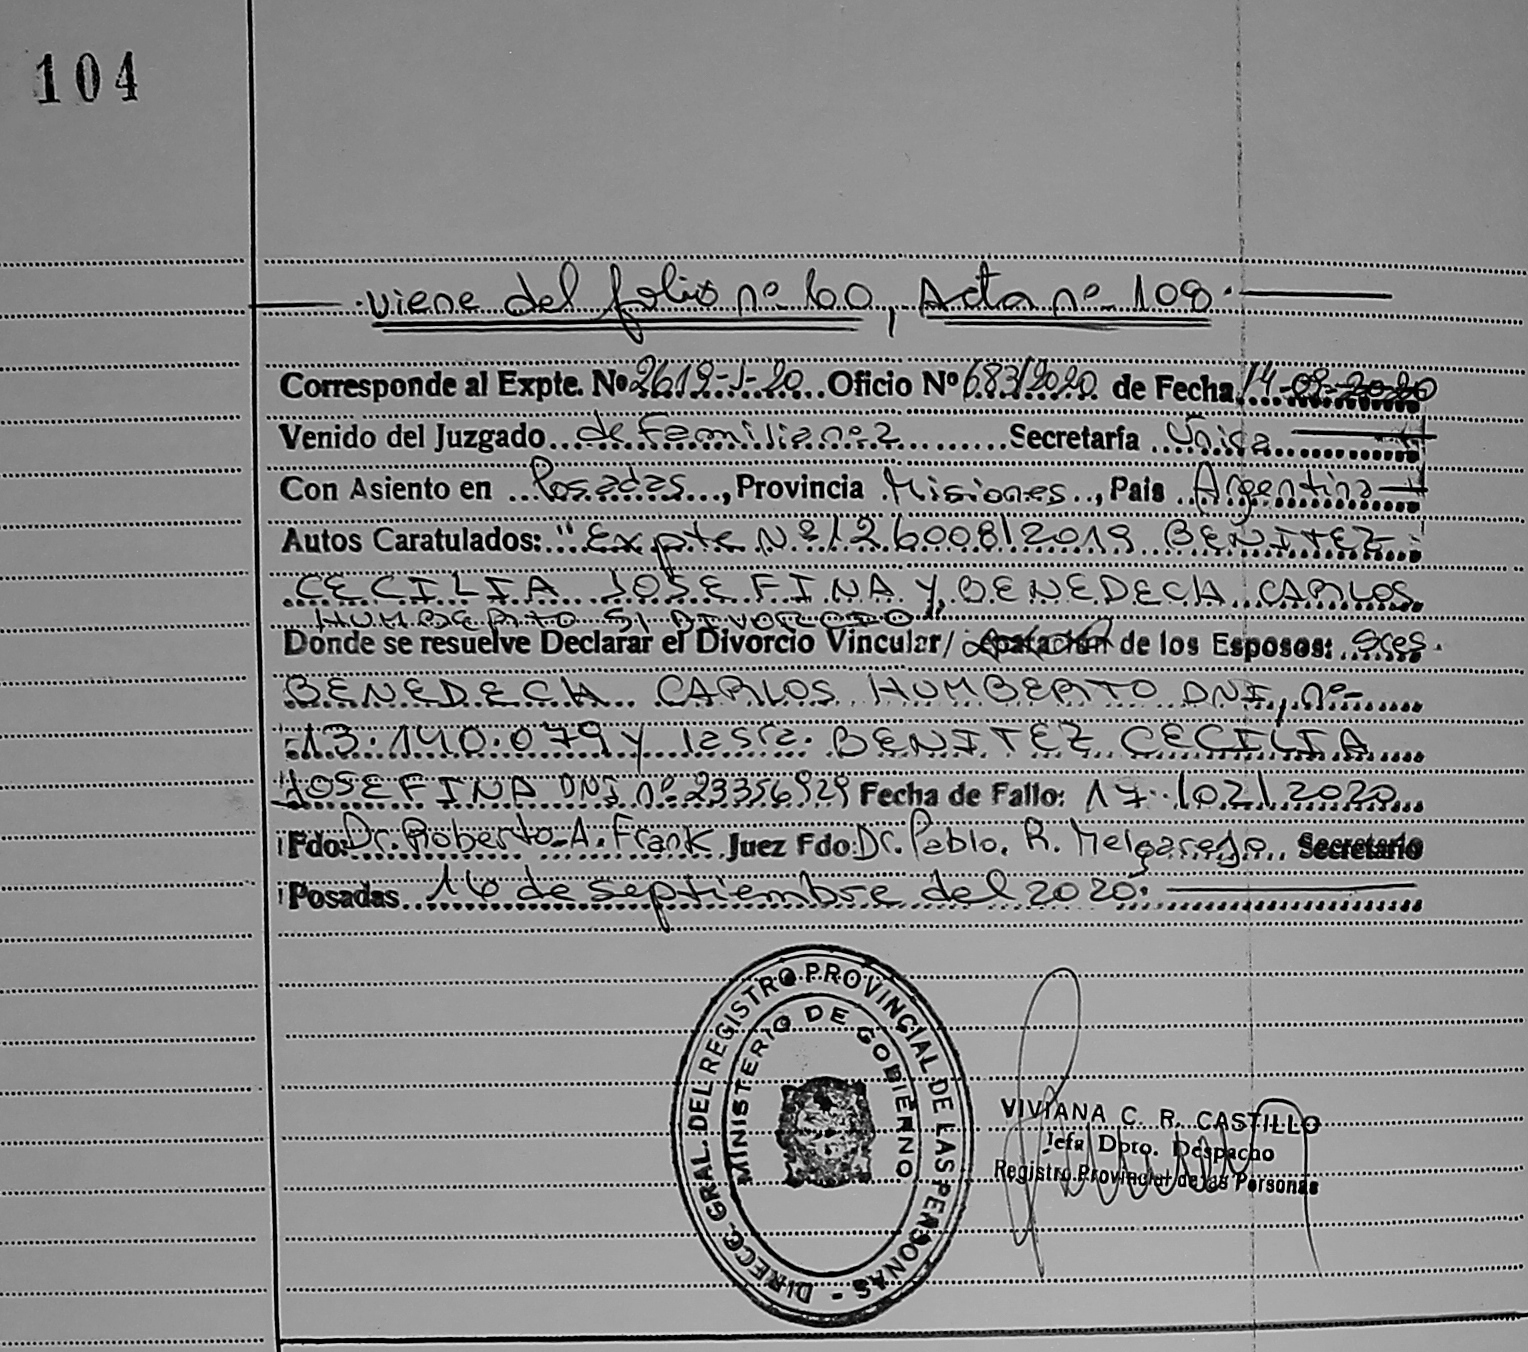 104
viene del folio nº 60, Acta nº 108.
Corresponde al Expte. Nº 2619-J-20 Oficio Nº 683/2020 de Fecha 14-09-2020
Venido del Juzgado de Familia nº 2 Secretaría Única
Con Asiento en Posadas, Provincia Misiones, País Argentina
Autos Caratulados: "Expte Nº 126008/2019 BENITEZ
CECILIA JOSEFINA Y BENEDECH CARLOS
HUMBERTO S/ DIVORCIO"
Donde se resuelve Declarar el Divorcio Vincular/ de los Esposos:
BENEDECH CARLOS HUMBERTO DNI, nº-
13.140.079 y la sra. BENITEZ CECILIA
JOSEFINA DNI nº 23356929 Fecha de Fallo: 17/02/2020
Fdo: Dr. Roberto A. Frank Juez Fdo: Dr. Pablo. R. Melgarejo Secretario
Posadas 16 de septiembre del 2020.
DIRECC. GRAL. DEL REGISTRO PROVINCIAL DE LAS PERSONAS -
MINISTERIO DE GOBIERNO
VIVIANA C. R. CASTILLO
Jefa Dpto. Despacho
Registro Provincial de las Personas